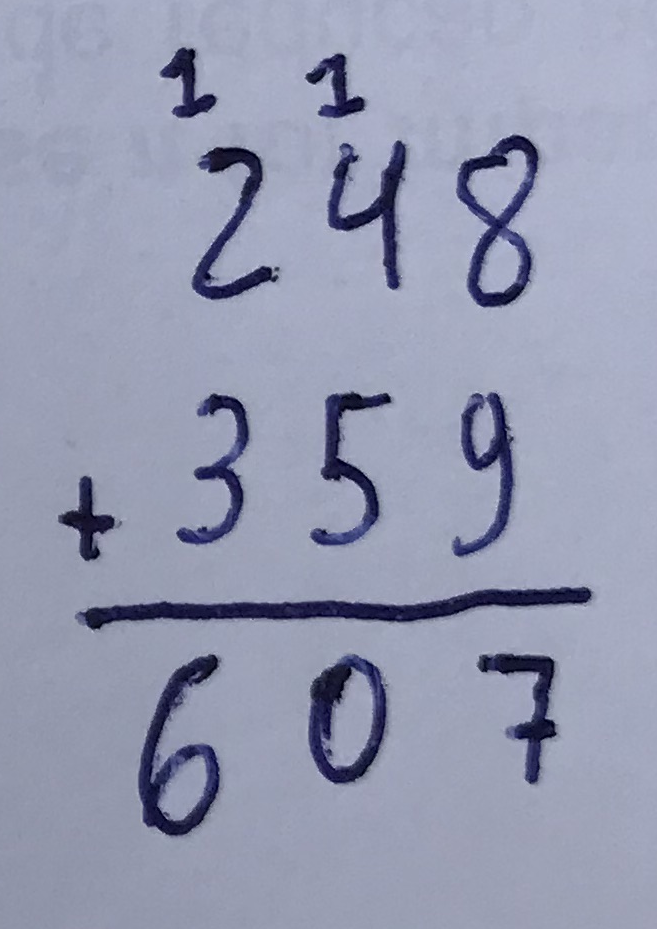 1 1
248
+ 359
607